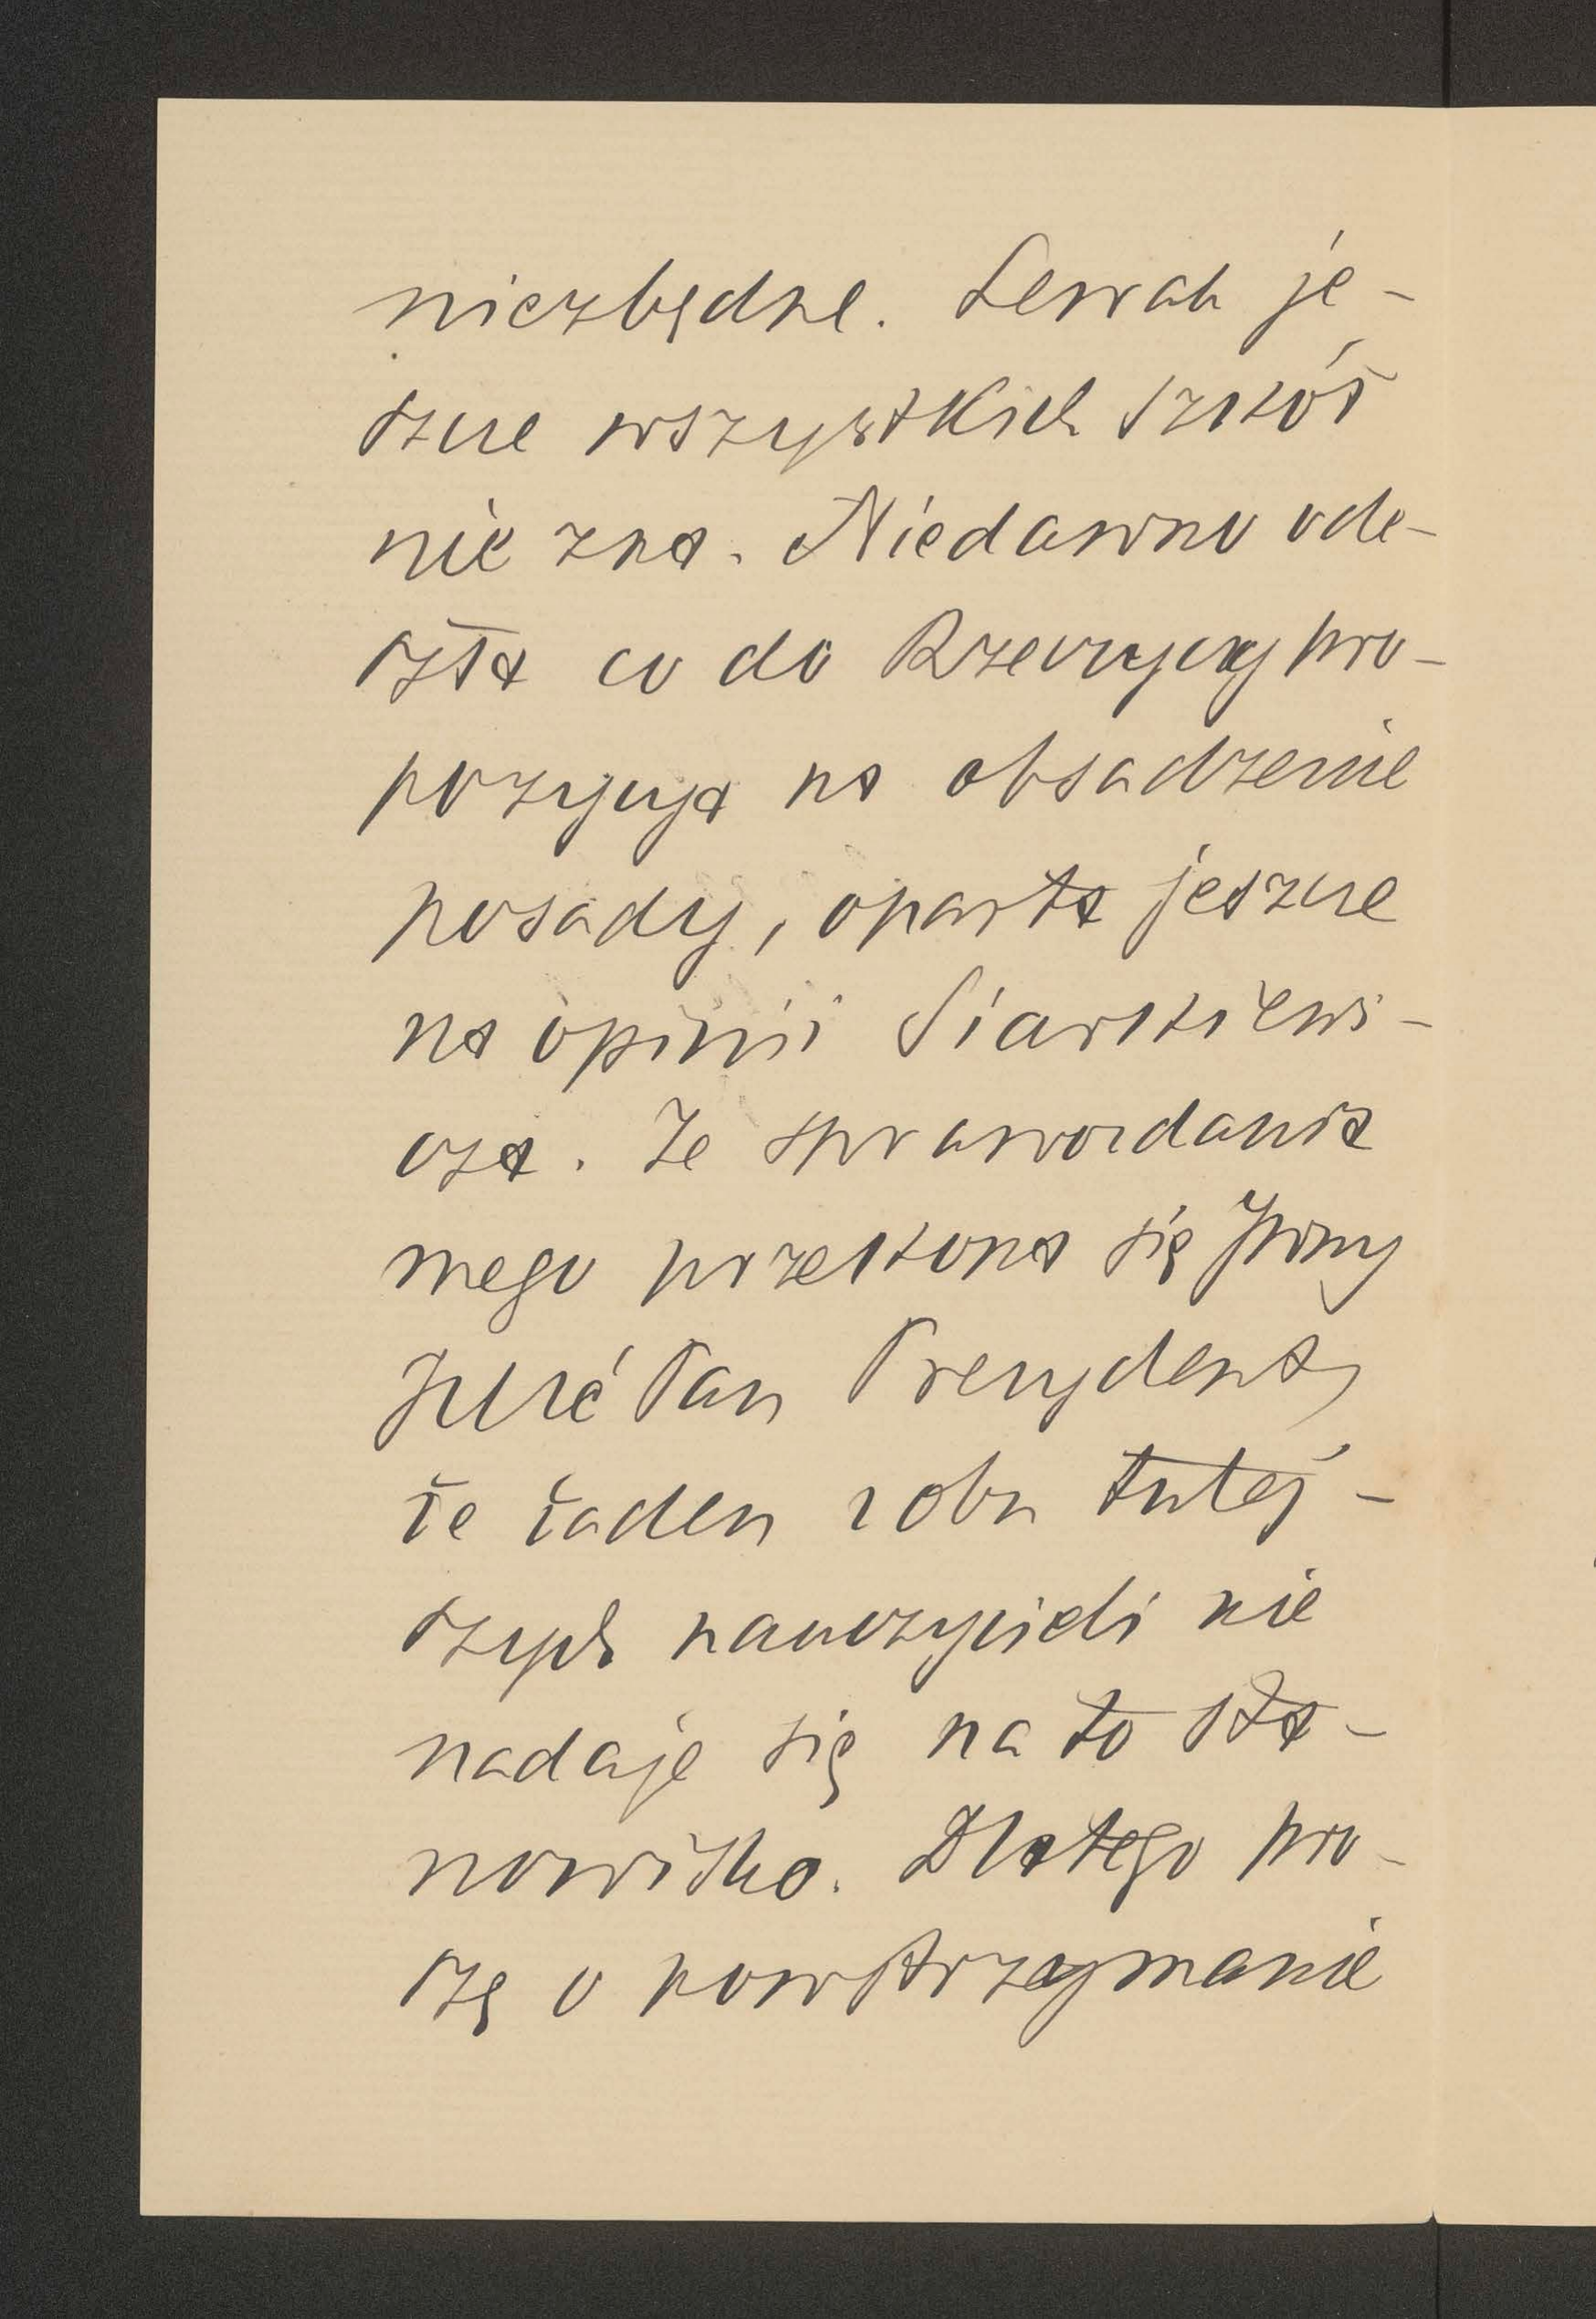 niezbędne. Lewak je-
szcze wszystkich szkół
nie zna. Niedawno ode-
szła co do Rzeczycy pro-
pozycya na obsadzenie
posady, oparta jeszcze
na opinii Siarkiewi-
cza. Ze sprawozdania
mego przekona się JWny
Jmć Pan Prezydent,
że żaden z obu tutej-
szych nauczycieli nie
nadaje się na to sta-
nowisko. Dlatego pro-
szę o powstrzymanie